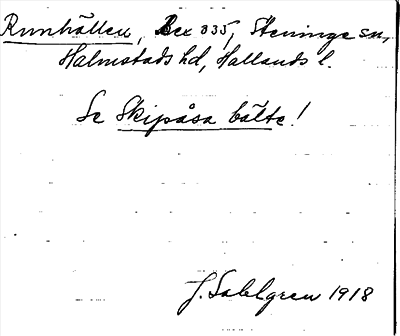 Runhällen, Bex 335, Steninge sn,
Halmstads hd, Hallands l.
Se Skipåsa bälte!
J. Sahlgren 1918